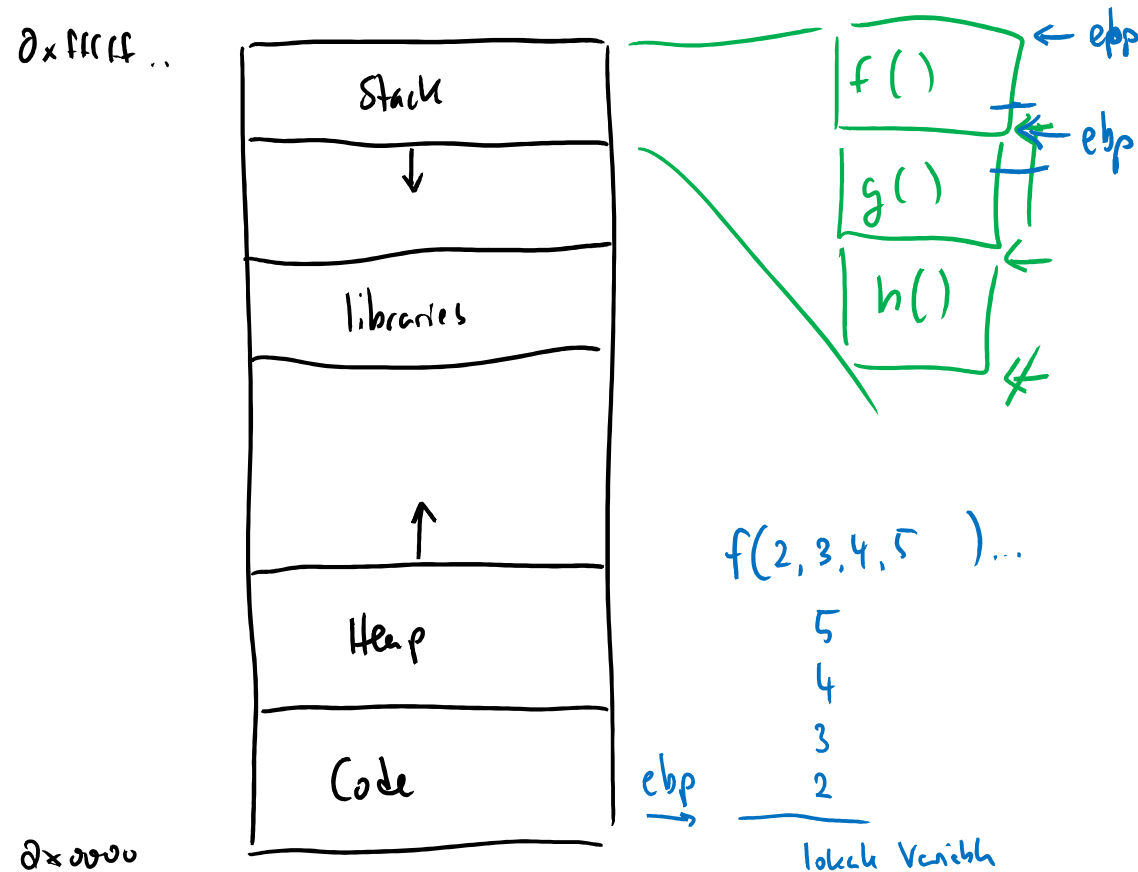 0xfffff..
Stack
libraries
Heap
Code
0x0000
f()
g()
h()
ebp
ebp
f(2,3,4,5 )...
5
4
3
2
ebp
lokale Variable